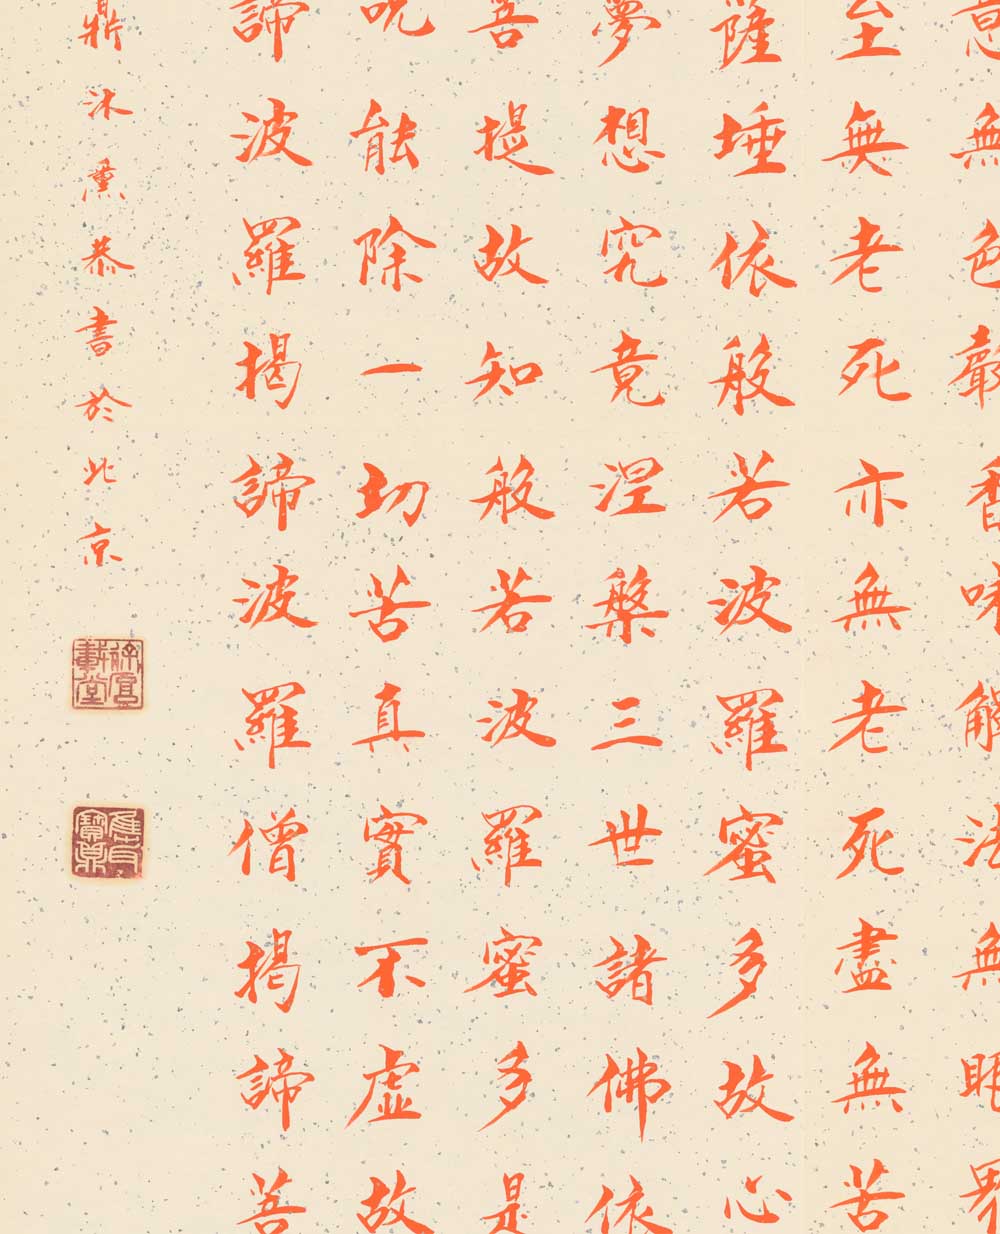 意無色聲香味觸法無眼界
至無老死亦無老死盡無苦
薩埵依般若波羅蜜多故心
夢想究竟涅槃三世諸佛依
菩提故知般若波羅蜜多是
呪能除一切苦真實不虛故
諦波羅揭諦波羅僧揭諦菩
鼎沐熏恭書於北京